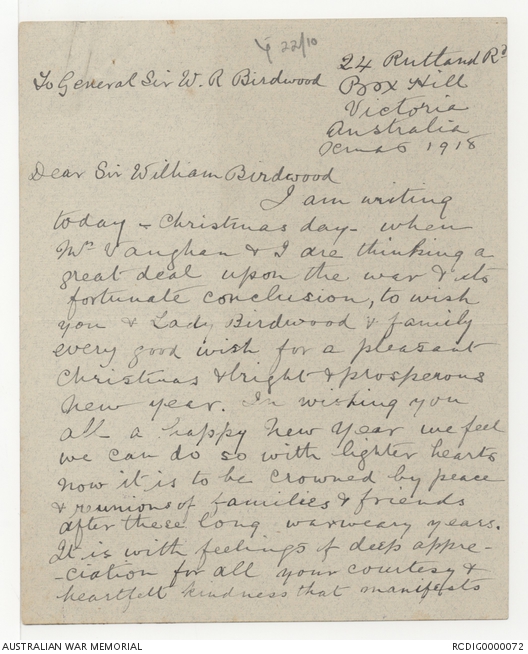 22/10
24 Rutland Rd
To General Sir W. R Birdwood
Box Hill
Victoria
Australia
Xmas 1918
Dear Sir William Birdwood
I am writing
today - Christmas day - when
Mrs Vaughan & I are thinking a
great deal upon the war & its
fortunate conclusion, to wish
you & Lady Birdwood & family
every good wish for a pleasant
Christmas & bright & prosperous
New year. In wishing you
all a happy New Year we feel
we can do so with lighter hearts
now it is to be crowned by peace
& reunions of families & friends
after these long warweary years.
It is with feelings of deep appre-
-ciation for all your courtesy &
heartfelt kindness that manifests
AUSTRALIAN WAR MEMORIAL
RCDIG0000072